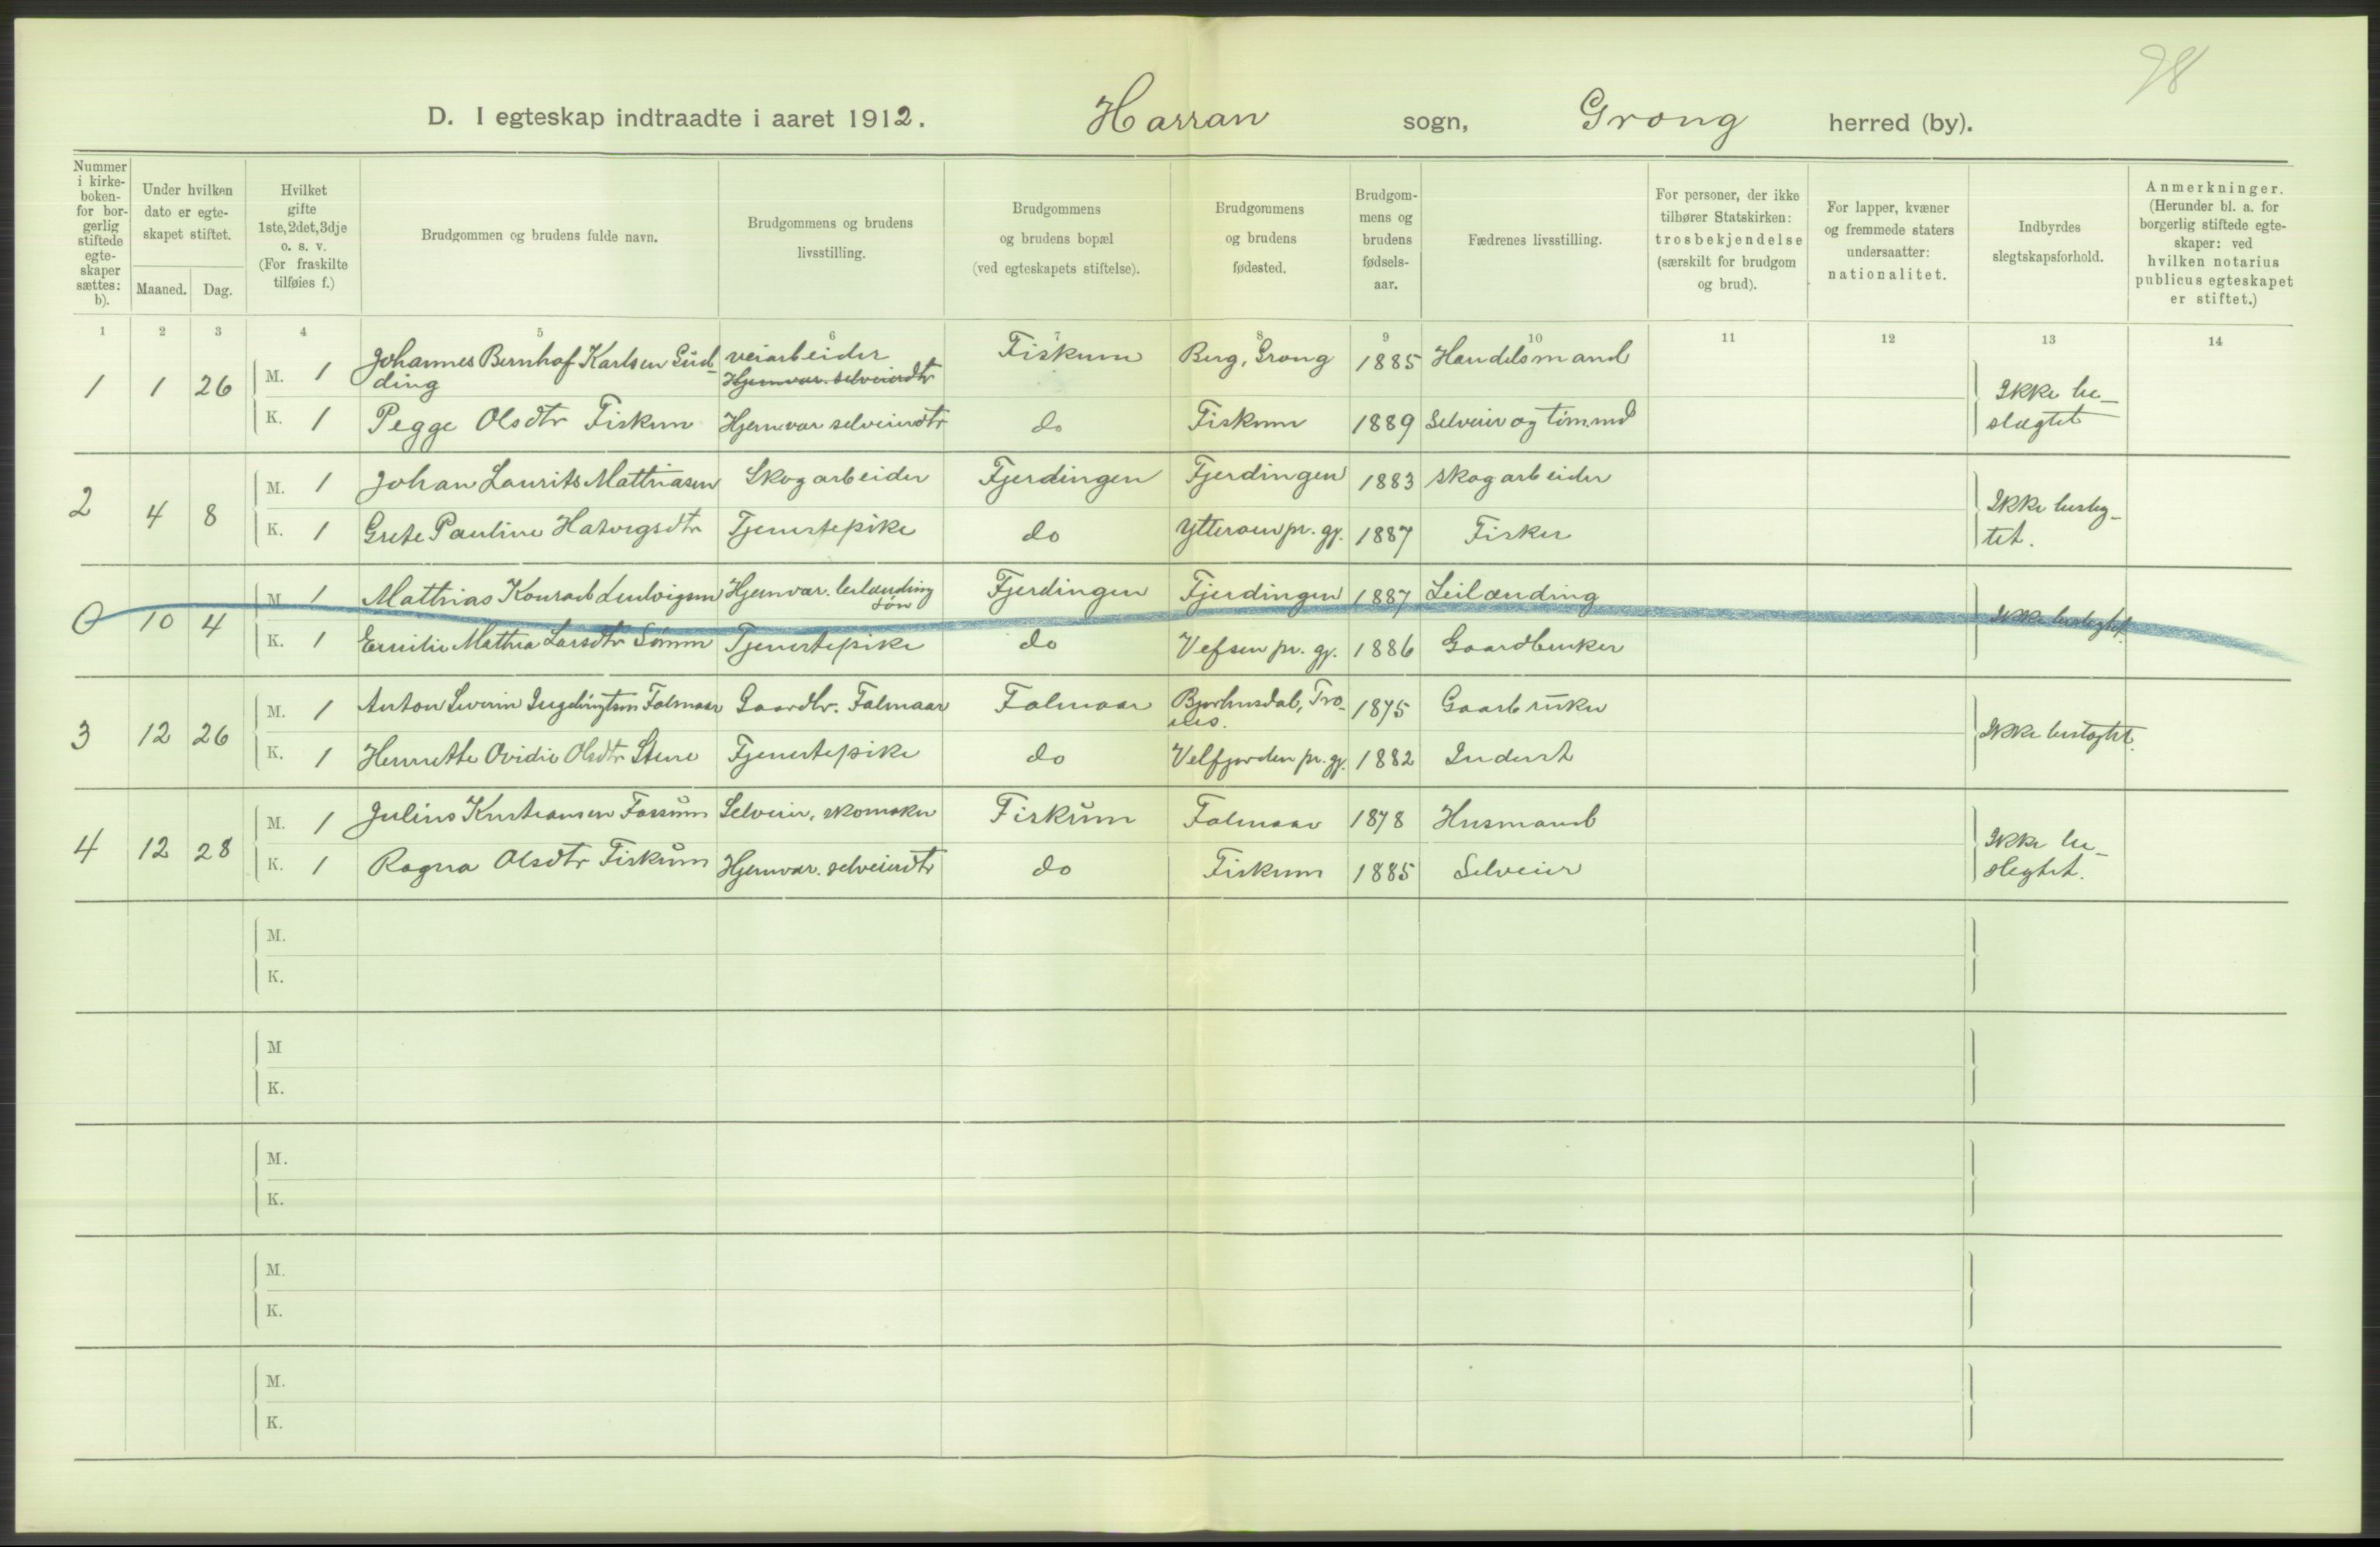 98
D. I egteskap indtraadte i aaret 1912. Harran sogn, Grong herred (by).
Nummer i kirke-boken- for bor-gerlig stiftede egte-skaper sættes: b).
Under hvilken dato er egte-skapet stiftet.
Maaned. Dag.
Hvilket gifte 1ste, 2det, 3dje o. s. v. (For fraskilte tilføies f.)
Brudgommen og brudens fulde navn.
Brudgommens og brudens livsstilling.
Brudgommens og brudens bopæl (ved egteskapets stiftelse).
Brudgommens og brudens fødested.
Brudgom-mens og brudens fødsels-aar.
Fædrenes livsstilling.
For personer, der ikke tilhører Statskirken: trosbekjendelse (særskilt for brudgom og brud).
For lapper, kvæner og fremmede staters undersaatter: nationalitet.
Indbyrdes slegtskapsforhold.
Anmerkninger. (Herunder bl. a. for borgerlig stiftede egte-skaper: ved hvilken notarius publicus egteskapet er stiftet.)
1 2 3 4 5 6 7 8 9 10 11 12 13 14
1 1 26 M. 1 Johannes Bernhof Karlsen Gud-ding veiarbeider Hjemvar. selveierdtr Fiskum Berg, Grong 1885 Handelsmand Ikke be-slegtet
K. 1 Pegge Olsdtr Fiskum Hjemvar selveierdtr do Fiskum 1889 Selveier og tømmd
2 4 8 M. 1 Johan Laurits Mathiasen Skogarbeider Fjerdingen Fjerdingen 1883 skogarbeider Ikke besleg-tet.
K. 1 Grete Pauline Hatvigsdtr Tjenestepike do Ytterøen pr. gj. 1887 Fisker
0 10 4 M. 1 Mathias Konrad Ludvigsen Hjemvar. leilænding søn Fjerdingen Fjerdingen 1887 Leilænding Ikke beslegtet.
K. 1 Emilie Mathea Larsdtr Sømm Tjenestepike do Vefsen pr. gj. 1886 Gaardbruker
3 12 26 M. 1 Anton Severin Ingebrigtsen Falmaar Gaardbr. Falmaar Falmaar Bjørhusdal, 1875 Gaarbruker Ikke beslegtet.
K. 1 Henrette Ovidie Olsdtr Stene Tjenestepike do Velfjorden pr. gj. 1882 Inderst
4 12 28 M. 1 Julius Kristiansen Fossum Selveier, skomaker Fiskum Falmaar 1878 Husmand Ikke be-slegtet.
K. 1 Ragna Olsdtr Fiskum Hjemvar. selveierdtr do Fiskum 1885 Selveier
M.
K.
M
K.
M.
K.
M.
K.
M.
K.